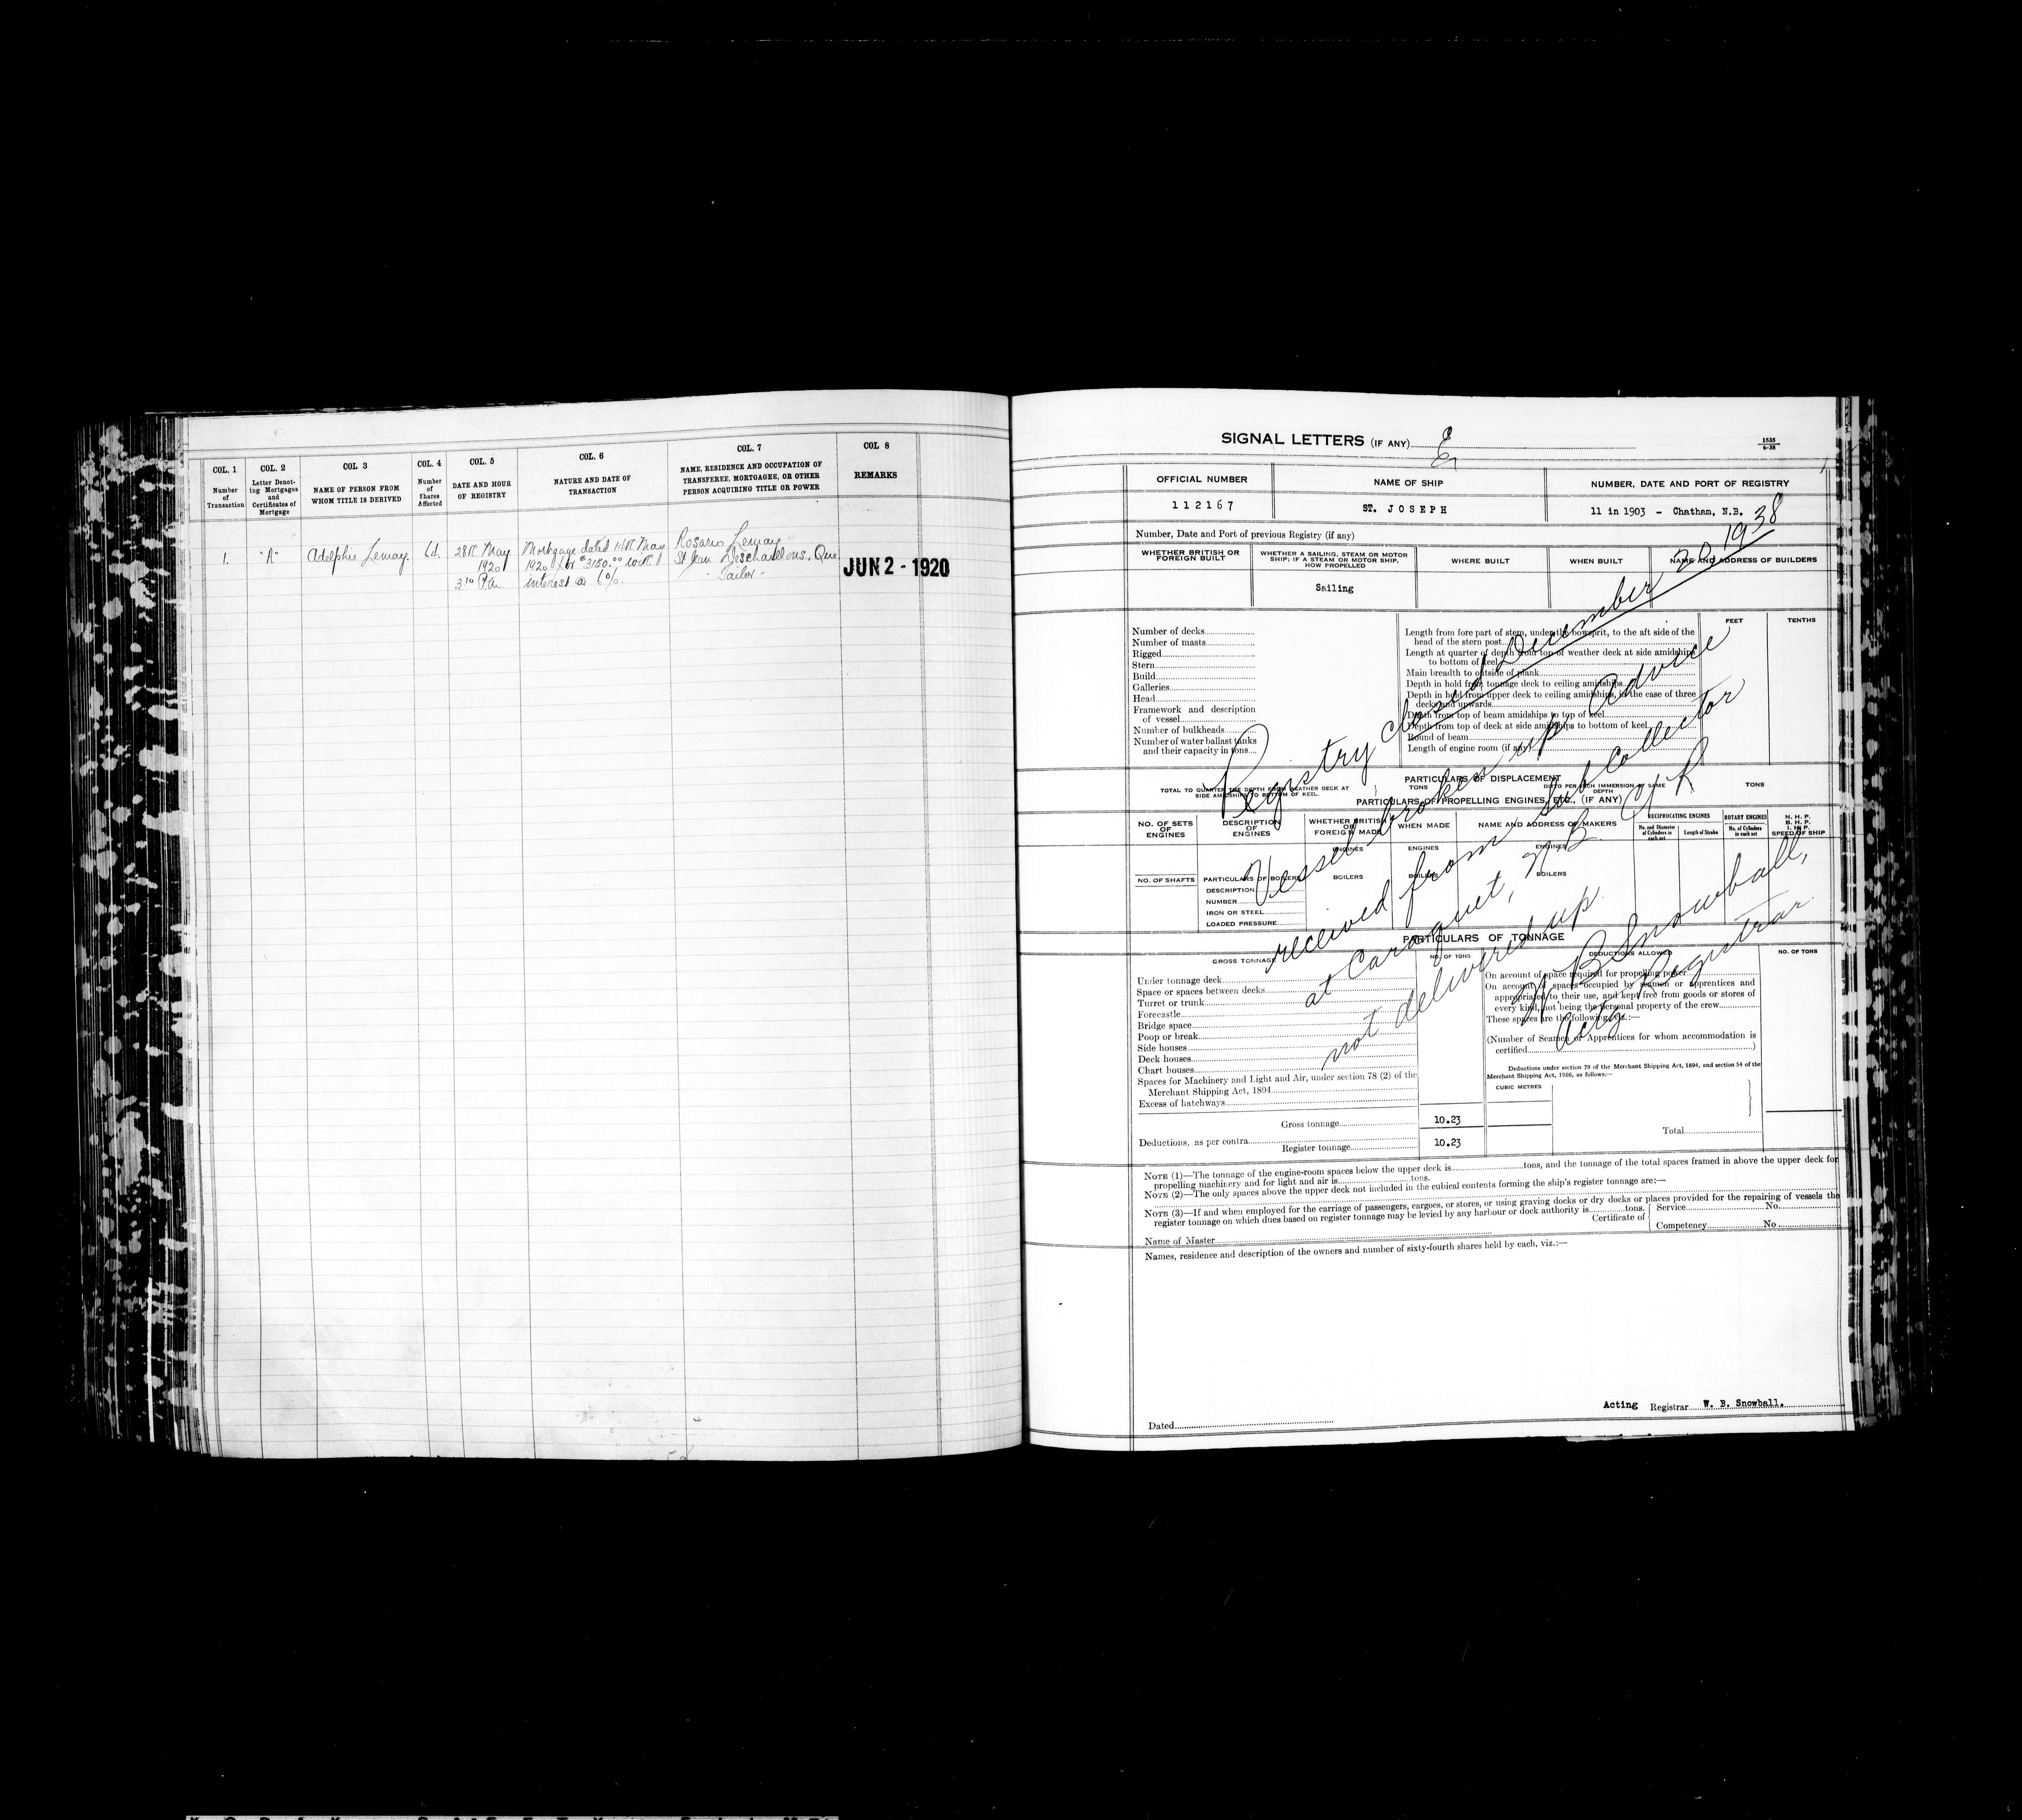 COL. 1
Number
of
Transaction
COL. 2
Letter Denot-
ing Mortgages
and
Certificates of
Mortgage
COL. 3
NAME OF PERSON FROM
WHOM TITLE IS DERIVED
COL. 4
Number
of
Shares
Affected
COL. 5
DATE AND HOUR
OF REGISTRY
COL. 6
NATURE AND DATE OF
TRANSACTION
COL. 7
NAME, RESIDENCE AND OCCUPATION OF
TRANSFEREE, MORTGAGEE, OR OTHER
PERSON ACQUIRING TITLE OR POWER
COL. 8
REMARKS
1.
"A"
Adelphie Lemay.
64.
28th May
1920
3.10 P.m.
Mortgage dated May
1920 for $3150.00 with
interest @ 6%.
Rosario Lemay
St Jean Deschaillons, Que
- Sailor -
JUN 2 - 1920
SIGNAL LETTERS (IF ANY)
1535
6-38
OFFICIAL NUMBER
NAME OF SHIP
NUMBER, DATE AND PORT OF REGISTRY
112167
ST. JOSEPH
11 in 1903 - Chatham, N.B.
Number, Date and Port of previous Registry (if any)
WHETHER BRITISH OR
FOREIGN BUILT
WHETHER A SAILING, STEAM OR MOTOR
SHIP; IF A STEAM OR MOTOR SHIP,
HOW PROPELLED
WHERE BUILT
WHEN BUILT
NAME AND ADDRESS OF BUILDERS
Sailing
Number of decks
Number of masts
Rigged
Stern
Build
Galleries
Head
Framework and description
of vessel
Number of bulkheads
Number of water ballast tanks
and their capacity in tons
FEET
TENTHS
Length from fore part of stem, under the bowsprit, to the aft side of the
head of the stern post
Length at quarter of depth from top of weather deck at side amidships
to bottom of keel
Main breadth to outside of plank
Depth in hold from tonnage deck to ceiling amidships
Depth in hold from upper deck to ceiling amidships, in the case of three
decks and upwards
Depth from top of beam amidships to top of keel
Depth from top of deck at side amidships to bottom of keel
Round of beam
Length of engine room (if any)
Registry closed December 20 1938
Vessel broken up. Advice
received from Sub Collector
at Caraquet, N B
not delivered up.
W B Snowball,
Actg Registrar.
PARTICULARS OF DISPLACEMENT
TOTAL TO QUARTER THE DEPTH FROM WEATHER DECK AT
SIDE AMIDSHIPS TO BOTTOM OF KEEL.
TONS
DITTO PER INCH IMMERSION AT SAME
DEPTH
TONS
PARTICULARS OF PROPELLING ENGINES, ETC., (IF ANY)
NO. OF SETS
OF
ENGINES
DESCRIPTION
OF
ENGINES
WHETHER BRITISH
OR
FOREIGN MADE
WHEN MADE
NAME AND ADDRESS OF MAKERS
RECIPROCATING ENGINES
No. and Diameter
of Cylinders in
each set
Length of Stroke
ROTARY ENGINES
No. of Cylinders
in each set
N. H. P.
B. H. P.
I. H. P.
SPEED OF SHIP
ENGINES
ENGINES
ENGINES
NO. OF SHAFTS
PARTICULARS OF BOILERS
BOILERS
BOILERS
BOILERS
DESCRIPTION
NUMBER
IRON OR STEEL
LOADED PRESSURE
PARTICULARS OF TONNAGE
GROSS TONNAGE
NO. OF TONS
DEDUCTIONS ALLOWED
NO. OF TONS
Under tonnage deck
Space or spaces between decks
Turret or trunk
Forecastle
Bridge space
Poop or break
Side houses
Deck houses
Chart houses
Spaces for Machinery and Light and Air, under section 78 (2) of the
Merchant Shipping Act, 1894
Excess of hatchways
Gross tonnage
10.23
Deductions, as per contra
Register tonnage
10.23
On account of space required for propelling power
On account of spaces occupied by seamen or apprentices and
appropriated to their use, and kept free from goods or stores of
every kind, not being the personal property of the crew
These spaces are the following, viz.:—
(Number of Seamen or Apprentices for whom accommodation is
certified)
Deductions under section 79 of the Merchant Shipping Act, 1894, and section 54 of the
Merchant Shipping Act, 1906, as follows:—
CUBIC METRES
Total
NOTE (1)—The tonnage of the engine-room spaces below the upper deck is tons, and the tonnage of the total spaces framed in above the upper deck for
propelling machinery and for light and air is tons.
NOTE (2)—The only spaces above the upper deck not included in the cubical contents forming the ship's register tonnage are:—
NOTE (3)—If and when employed for the carriage of passengers, cargoes, or stores, or using graving docks or dry docks or places provided for the repairing of vessels the
register tonnage on which dues based on register tonnage may be levied by any harbour or dock authority is tons.
Certificate of
Service No.
Competency No.
Name of Master
Names, residence and description of the owners and number of sixty-fourth shares held by each, viz.:—
Dated
Acting Registrar W. B. Snowball.